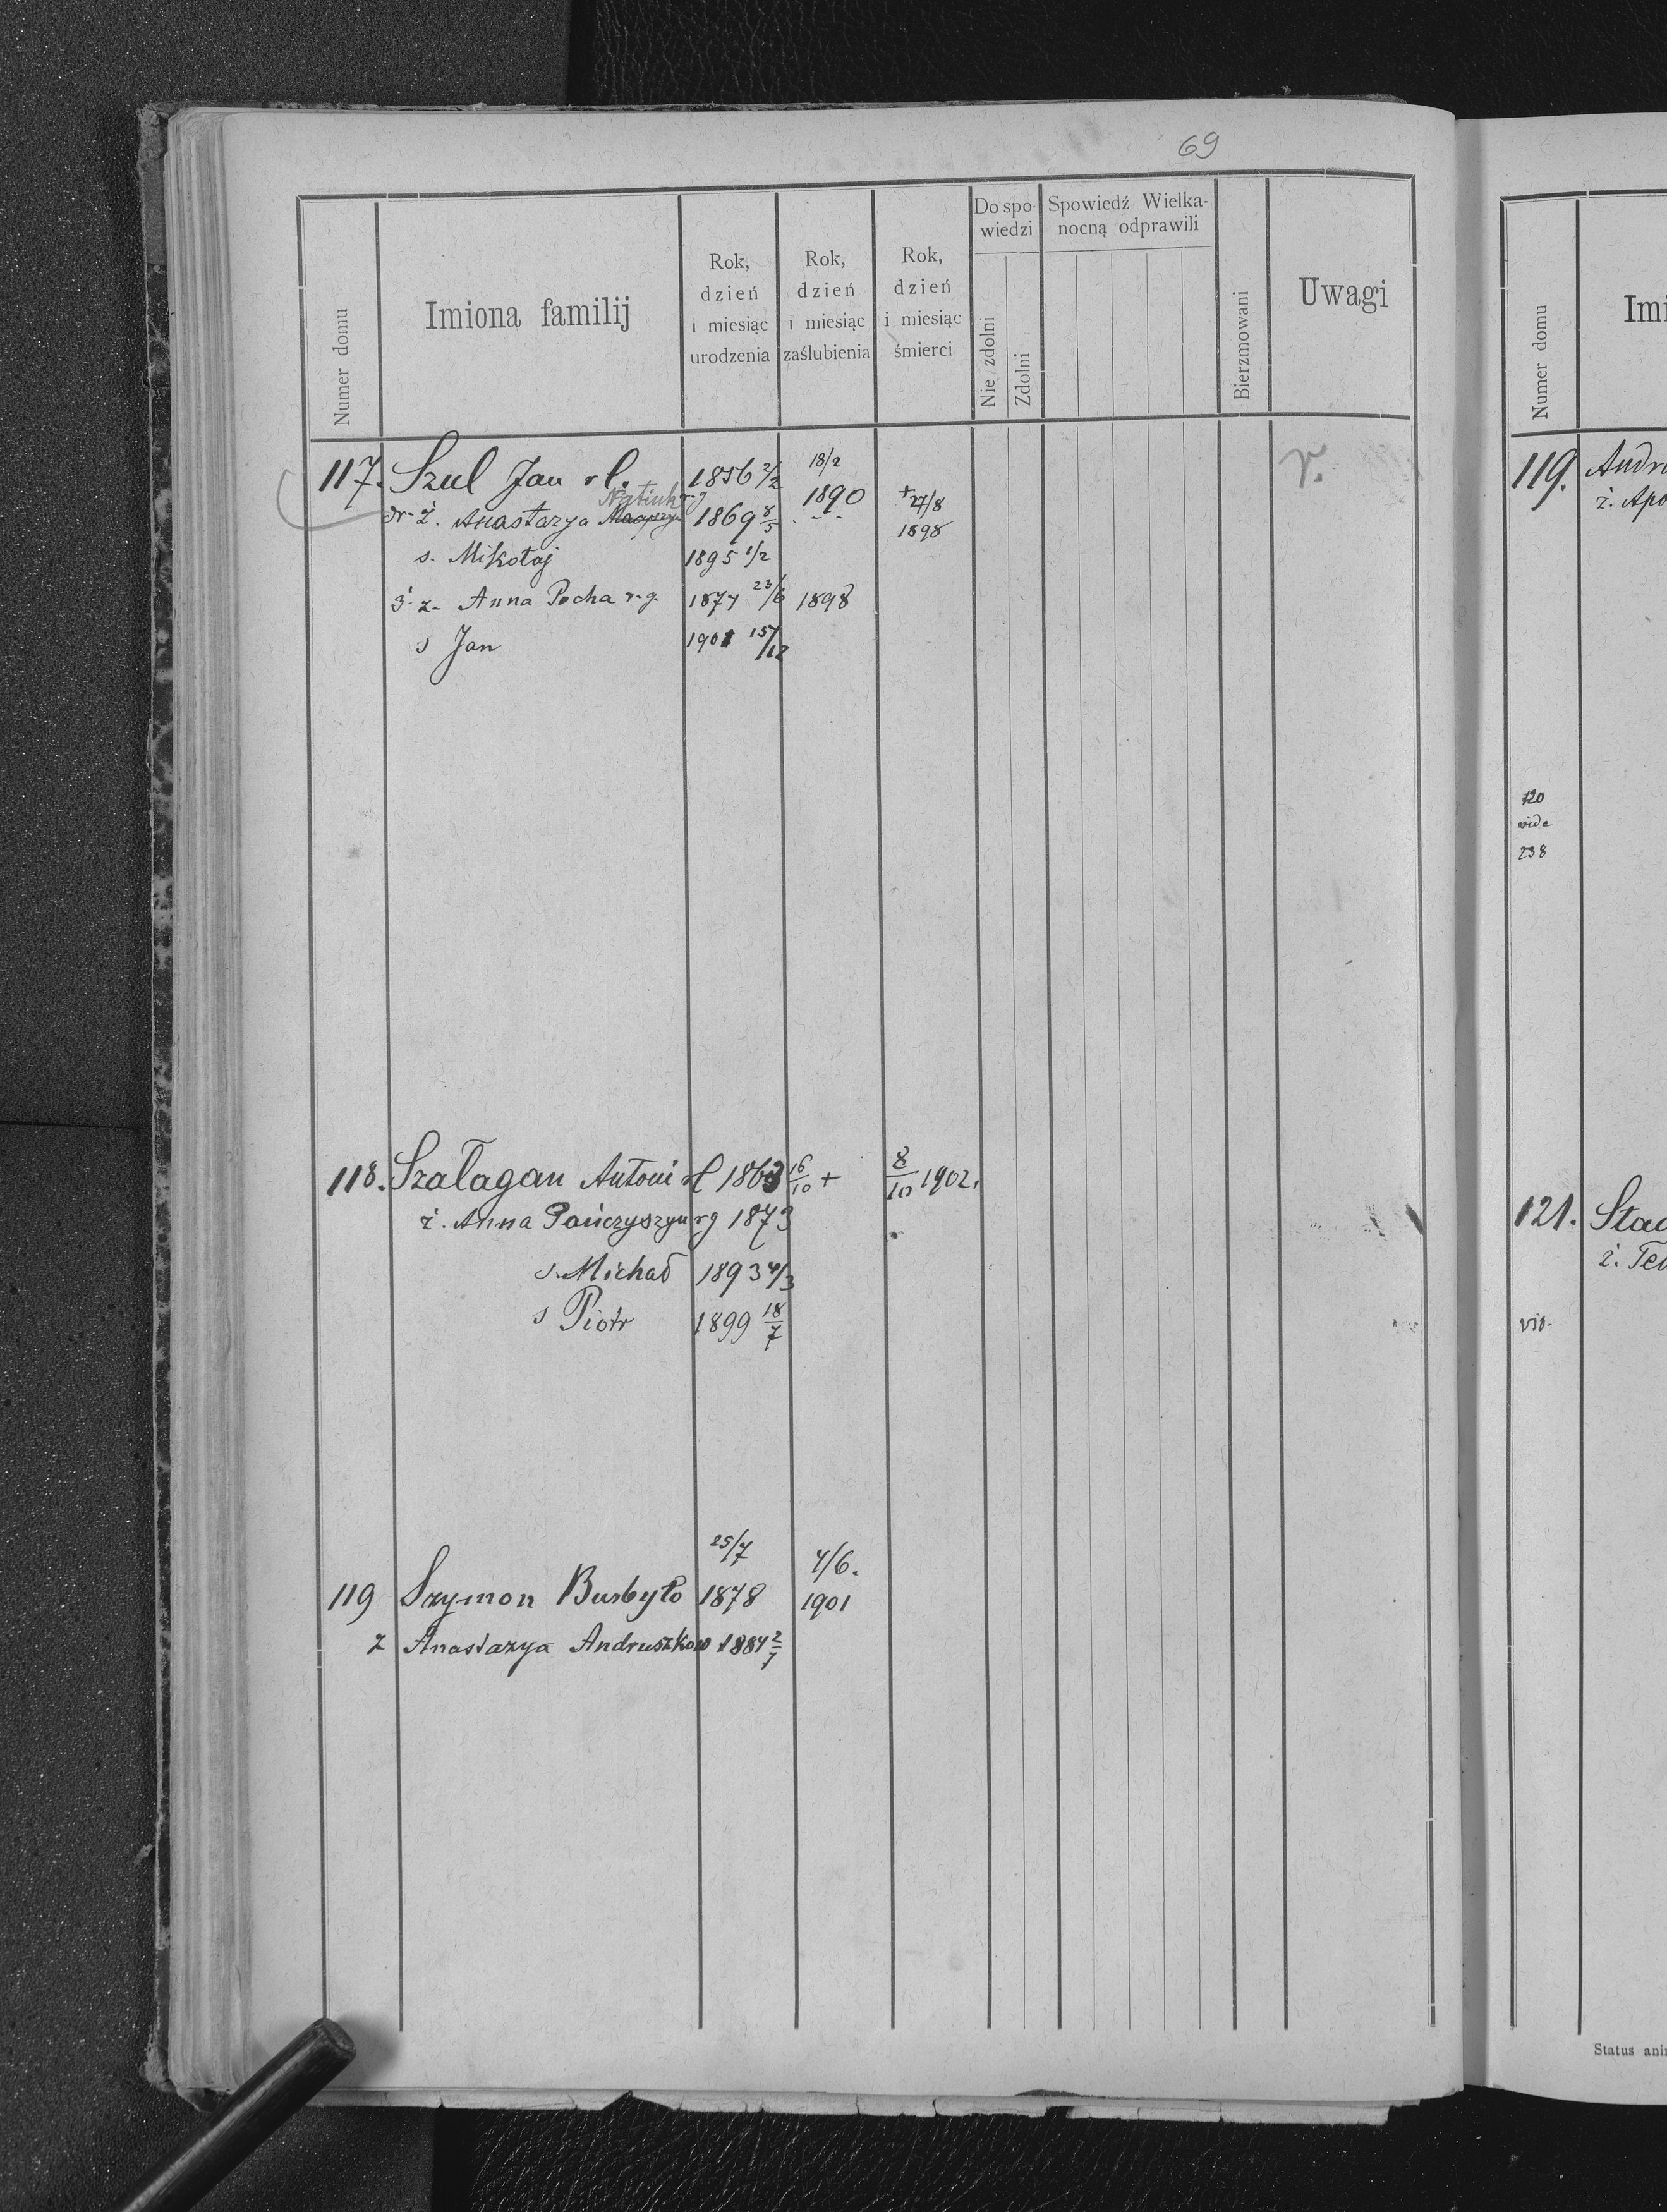 69
Numer domu
Imiona familij
Rok, dzień i miesiąc urodzenia
Rok, dzień i miesiąc zaślubienia
Rok, dzień i miesiąc śmierci
Do spowiedzi
Nie zdolni
Zdolni
Spowiedź Wielkanocną odprawili
Bierzmowani
Uwagi
117. Szul Jan rl. 1856 2/2 18/2 1890
ż. Anastazya r.g 1869 8/5 + 27/8 1898
s. Mikołaj 1895 1/2
3 ż. Anna Pocha r.g. 1874 23/6 1898
s Jan 1901 15/12
118. Szałagan Antoni rl 1863 16/10 + 8/10 1902.
ż. Anna Pańczyszyn rg 1873
s. Michał 1893 4/3
s Piotr 1899 18/7
25/7 4/6.
119 Szymon Busbyło 1878 1901
ż Anastazya Andruszkow 1884 2/7
Numer domu
Imi
119. Andru
ż. Apo
120
vide
238
121. Stac
ż. Te
Status ani